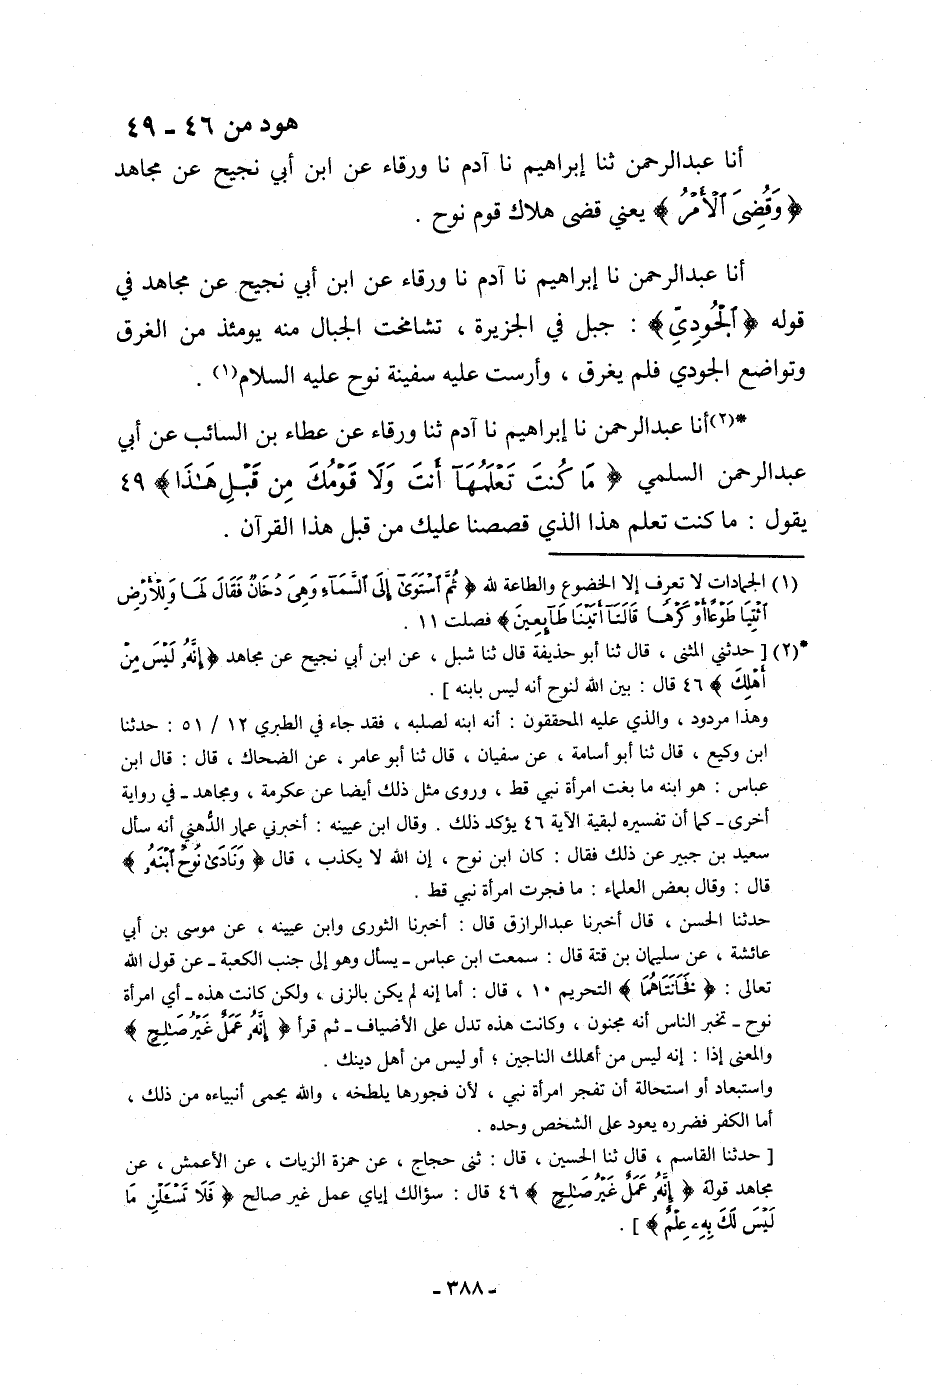 هود من ٤٦ ـ ٤٩
أنا عبدالرحمن ثنا إبراهيم نا آدم نا ورقاء عن ابن أبي نجيح عن مجاهد
﴿ وَقُضِىَ ٱلْأَمْرُ ﴾ يعني قضى هلاك قوم نوح .
أنا عبدالرحمن نا إبراهيم نا آدم نا ورقاء عن ابن أبي نجيح عن مجاهد في
قوله ﴿ ٱلْجُودِىِّ ﴾ : جبل في الجزيرة ، تشامخت الجبال منه يومئذ من الغرق
وتواضع الجودي فلم يغرق ، وأرست عليه سفينة نوح عليه السلام(١) .
*(٢)أنا عبدالرحمن نا إبراهيم نا آدم ثنا ورقاء عن عطاء بن السائب عن أبي
عبدالرحمن السلمي ﴿ مَا كُنتَ تَعْلَمُهَآ أَنتَ وَلَا قَوْمُكَ مِن قَبْلِ هَٰذَا ﴾ ٤٩
يقول : ما كنت تعلم هذا الذي قصصنا عليك من قبل هذا القرآن .
(١) الجمادات لا تعرف إلا الخضوع والطاعة لله ﴿ ثُمَّ ٱسْتَوَىٰٓ إِلَى ٱلسَّمَآءِ وَهِىَ دُخَانٌ فَقَالَ لَهَا وَلِلْأَرْضِ
ٱئْتِيَا طَوْعًا أَوْ كَرْهًا قَالَتَآ أَتَيْنَا طَآئِعِينَ ﴾ فصلت ١١ .
*(٢) [ حدثني المثنى ، قال ثنا أبو حذيفة قال ثنا شبل ، عن ابن أبي نجيح عن مجاهد ﴿ إِنَّهُۥ لَيْسَ مِنْ
أَهْلِكَ ﴾ ٤٦ قال : بين الله لنوح أنه ليس بابنه ] .
وهذا مردود ، والذي عليه المحققون : أنه ابنه لصلبه ، فقد جاء في الطبري ١٢ / ٥١ : حدثنا
ابن وكيع ، قال ثنا أبو أسامة ، عن سفيان ، قال ثنا أبو عامر ، عن الضحاك ، قال : قال ابن
عباس : هو ابنه ما بغت امرأة نبي قط ، وروى مثل ذلك أيضا عن عكرمة ، ومجاهد ـ في رواية
أخرى ـ كما أن تفسيره لبقية الآية ٤٦ يؤكد ذلك . وقال ابن عيينه : أخبرني عمار الدُّهني أنه سأل
سعيد بن جبير عن ذلك فقال : كان ابن نوح ، إن الله لا يكذب ، قال ﴿ وَنَادَىٰ نُوحٌ ٱبْنَهُۥ ﴾
قال : وقال بعض العلماء : ما فجرت امرأة نبي قط .
حدثنا الحسن ، قال أخبرنا عبدالرازق قال : أخبرنا الثورى وابن عيينه ، عن موسى بن أبي
عائشة ، عن سليمان بن قتة قال : سمعت ابن عباس ـ يسأل وهو إلى جنب الكعبة ـ عن قول الله
تعالى : ﴿ فَخَانَتَاهُمَا ﴾ التحريم ١٠ ، قال : أما إنه لم يكن بالزنى ، ولكن كانت هذه ـ أي امرأة
نوح ـ تخبر الناس أنه مجنون ، وكانت هذه تدل على الأضياف ـ ثم قرأ ﴿ إِنَّهُۥ عَمَلٌ غَيْرُ صَٰلِحٍ ﴾
والمعنى إذا : إنه ليس من أهلك الناجين ؛ أو ليس من أهل دينك .
واستبعاد أو استحالة أن تفجر امرأة نبي ، لأن فجورها يلطخه ، والله يحمى أنبياءه من ذلك ،
أما الكفر فضرره يعود على الشخص وحده .
[ حدثنا القاسم ، قال ثنا الحسين ، قال : ثنى حجاج ، عن حمزة الزيات ، عن الأعمش ، عن
مجاهد قوله ﴿ إِنَّهُۥ عَمَلٌ غَيْرُ صَٰلِحٍ ﴾ ٤٦ قال : سؤالك إياي عمل غير صالح ﴿ فَلَا تَسْـَٔلْنِ مَا
لَيْسَ لَكَ بِهِۦ عِلْمٌ ﴾ ] .
ـ ٣٨٨ ـ